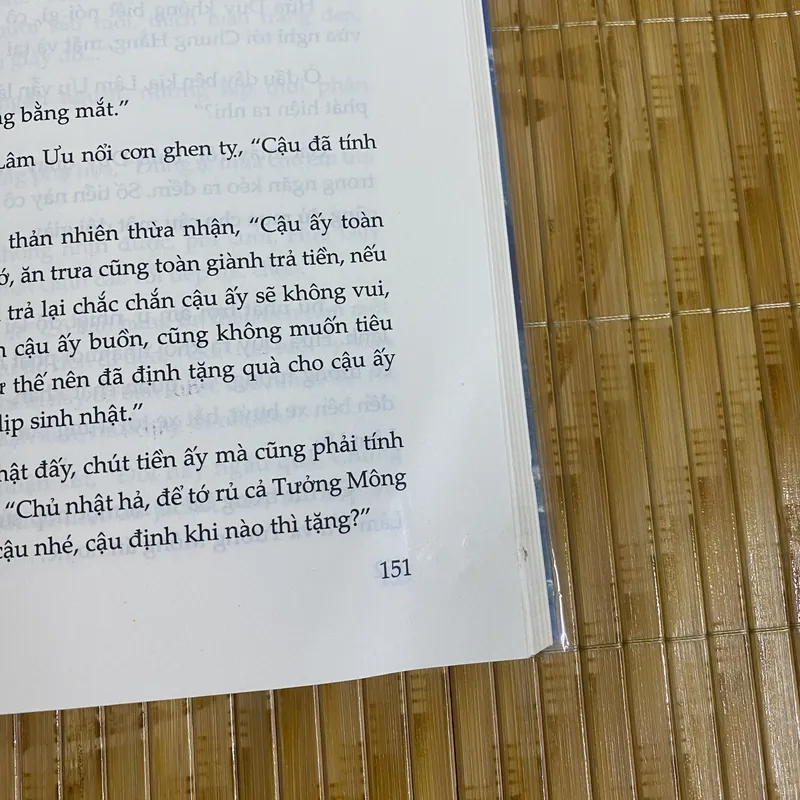 bằng mắt.”
Lâm Ưu nổi cơn ghen tỵ, “Cậu đã tính
thản nhiên thừa nhận, “Cậu ấy toàn
ăn trưa cũng toàn giành trả tiền, nếu
trả lại chắc chắn cậu ấy sẽ không vui,
cậu ấy buồn, cũng không muốn tiêu
thế nên đã định tặng quà cho cậu ấy
dịp sinh nhật.”
đấy, chút tiền ấy mà cũng phải tính
“Chủ nhật hả, để tớ rủ cả Tưởng Mông
cậu nhé, cậu định khi nào thì tặng?”
151